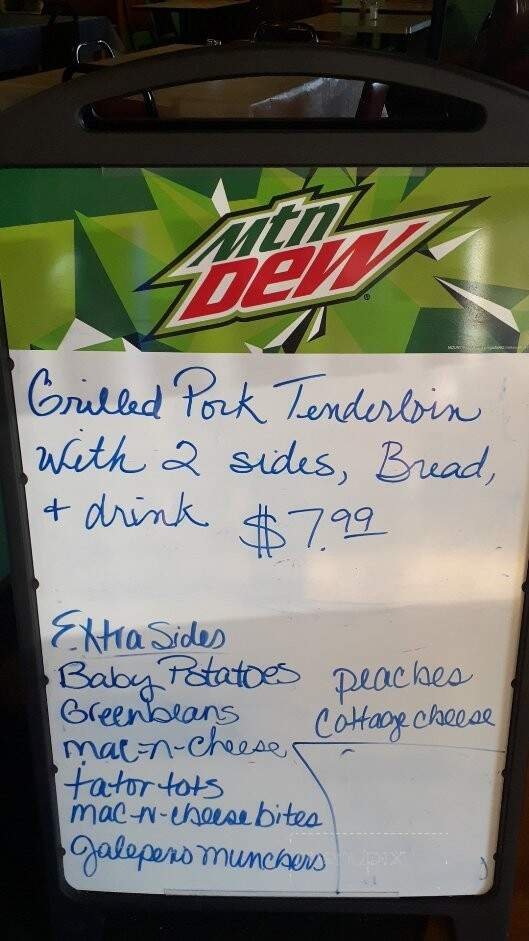 Mtn
Dew
Grilled Pork Tenderloin
with 2 sides, Bread,
+ drink $7.99
Extra Sides
Baby Potatoes
Greenbeans
mac-n-cheese
tator tots
mac-n-cheese bites
Jalepeno munchers
peaches
Cottage cheese